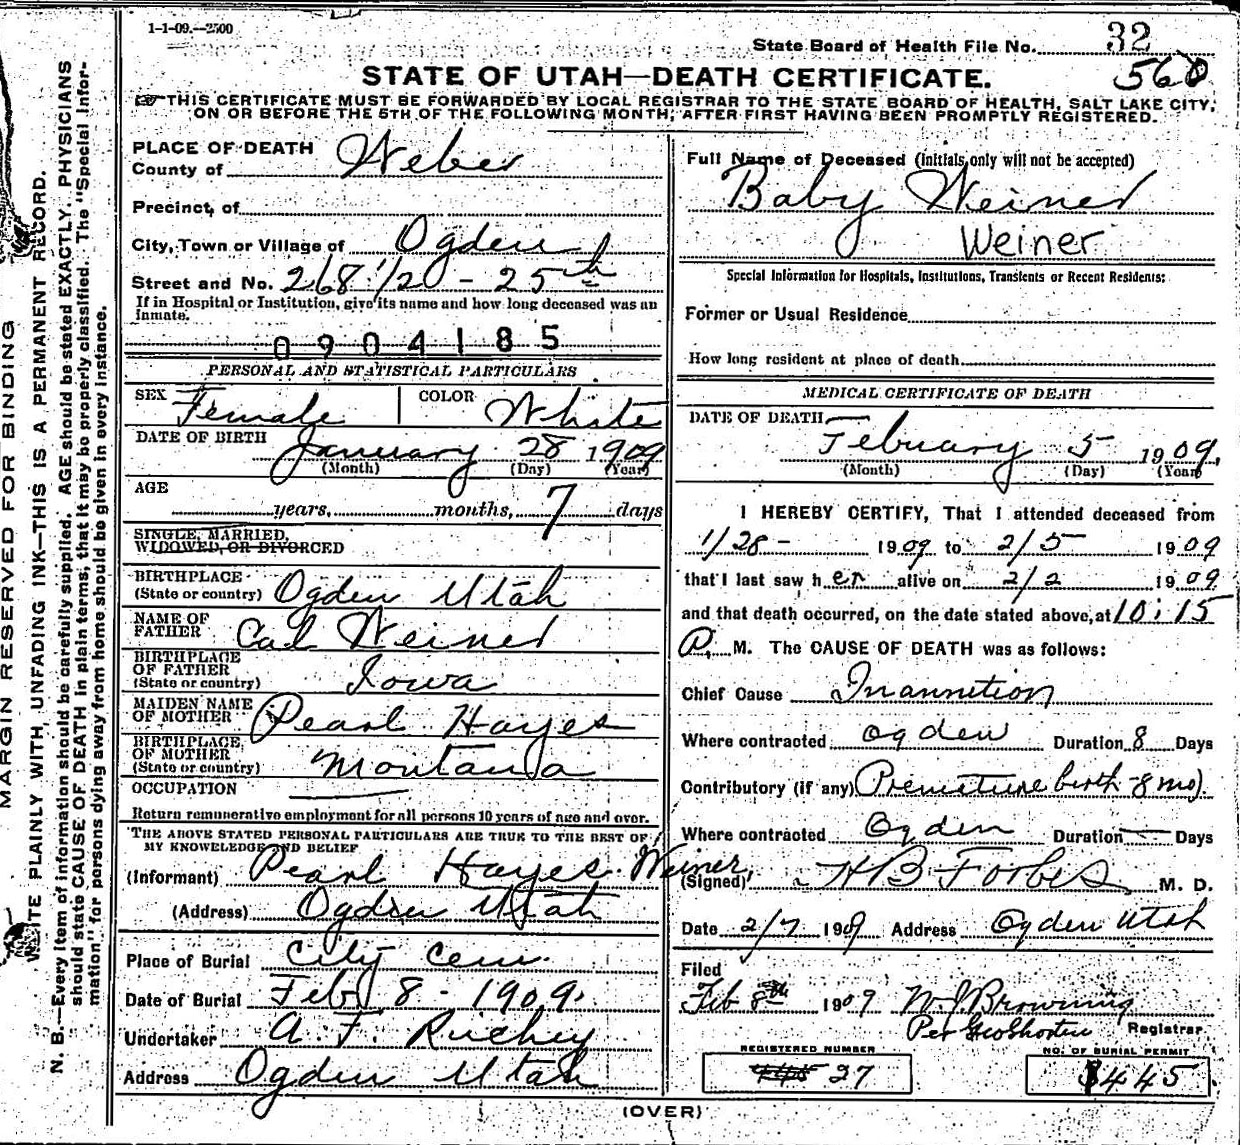 1-1-09.—2500
State Board of Health File No. 32
560
STATE OF UTAH—DEATH CERTIFICATE.
THIS CERTIFICATE MUST BE FORWARDED BY LOCAL REGISTRAR TO THE STATE BOARD OF HEALTH, SALT LAKE CITY,
ON OR BEFORE THE 5TH OF THE FOLLOWING MONTH, AFTER FIRST HAVING BEEN PROMPTLY REGISTERED.
MARGIN RESERVED FOR BINDING
WRITE PLAINLY WITH UNFADING INK—THIS IS A PERMANENT RECORD.
N. B.—Every item of information should be carefully supplied. AGE should be stated EXACTLY. PHYSICIANS
should state CAUSE OF DEATH in plain terms, that it may be properly classified. The "Special Infor-
mation" for persons dying away from home should be given in every instance.
PLACE OF DEATH
County of Weber
Precinct of
City, Town or Village of Ogden
Street and No. 268 1/2 - 25th
If in Hospital or Institution, give its name and how long deceased was an
inmate.
0904185
PERSONAL AND STATISTICAL PARTICULARS
SEX Female COLOR White
DATE OF BIRTH January 28 1909
(Month) (Day) (Year)
AGE
years, months, 7 days
SINGLE, MARRIED,
WIDOWED, OR DIVORCED
BIRTHPLACE
(State or country) Ogden Utah
NAME OF
FATHER Cal Weiner
BIRTHPLACE
OF FATHER
(State or country) Iowa
MAIDEN NAME
OF MOTHER Pearl Hayes
BIRTHPLACE
OF MOTHER
(State or country) Montana
OCCUPATION
Return remunerative employment for all persons 10 years of age and over.
THE ABOVE STATED PERSONAL PARTICULARS ARE TRUE TO THE BEST OF
MY KNOWLEDGE AND BELIEF
(Informant) Pearl Hayes Weiner,
(Address) Ogden Utah
Place of Burial City Cem.
Date of Burial Feb 8 - 1909.
Undertaker A. F. Richey
Address Ogden Utah
Full Name of Deceased (Initials only will not be accepted)
Baby Weiner
Weiner
Special Information for Hospitals, Institutions, Transients or Recent Residents:
Former or Usual Residence
How long resident at place of death
MEDICAL CERTIFICATE OF DEATH
DATE OF DEATH
Febuary 5 1909.
(Month) (Day) (Year)
I HEREBY CERTIFY, That I attended deceased from
1/28 - 1909 to 2/5 1909
that I last saw her alive on 2/2 1909
and that death occurred, on the date stated above, at 10:15
P. M. The CAUSE OF DEATH was as follows:
Chief Cause Inannition
Where contracted Ogden Duration 8 Days
Contributory (if any) Premature birth - 8 mo).
Where contracted Ogden Duration — Days
(Signed) H B Forbes M. D.
Date 2/7 1909 Address Ogden Utah
Filed
Feb 8th 1909 W J Browning
Per Geo Shorten Registrar
REGISTERED NUMBER
27
NO. OF BURIAL PERMIT
445
(OVER)